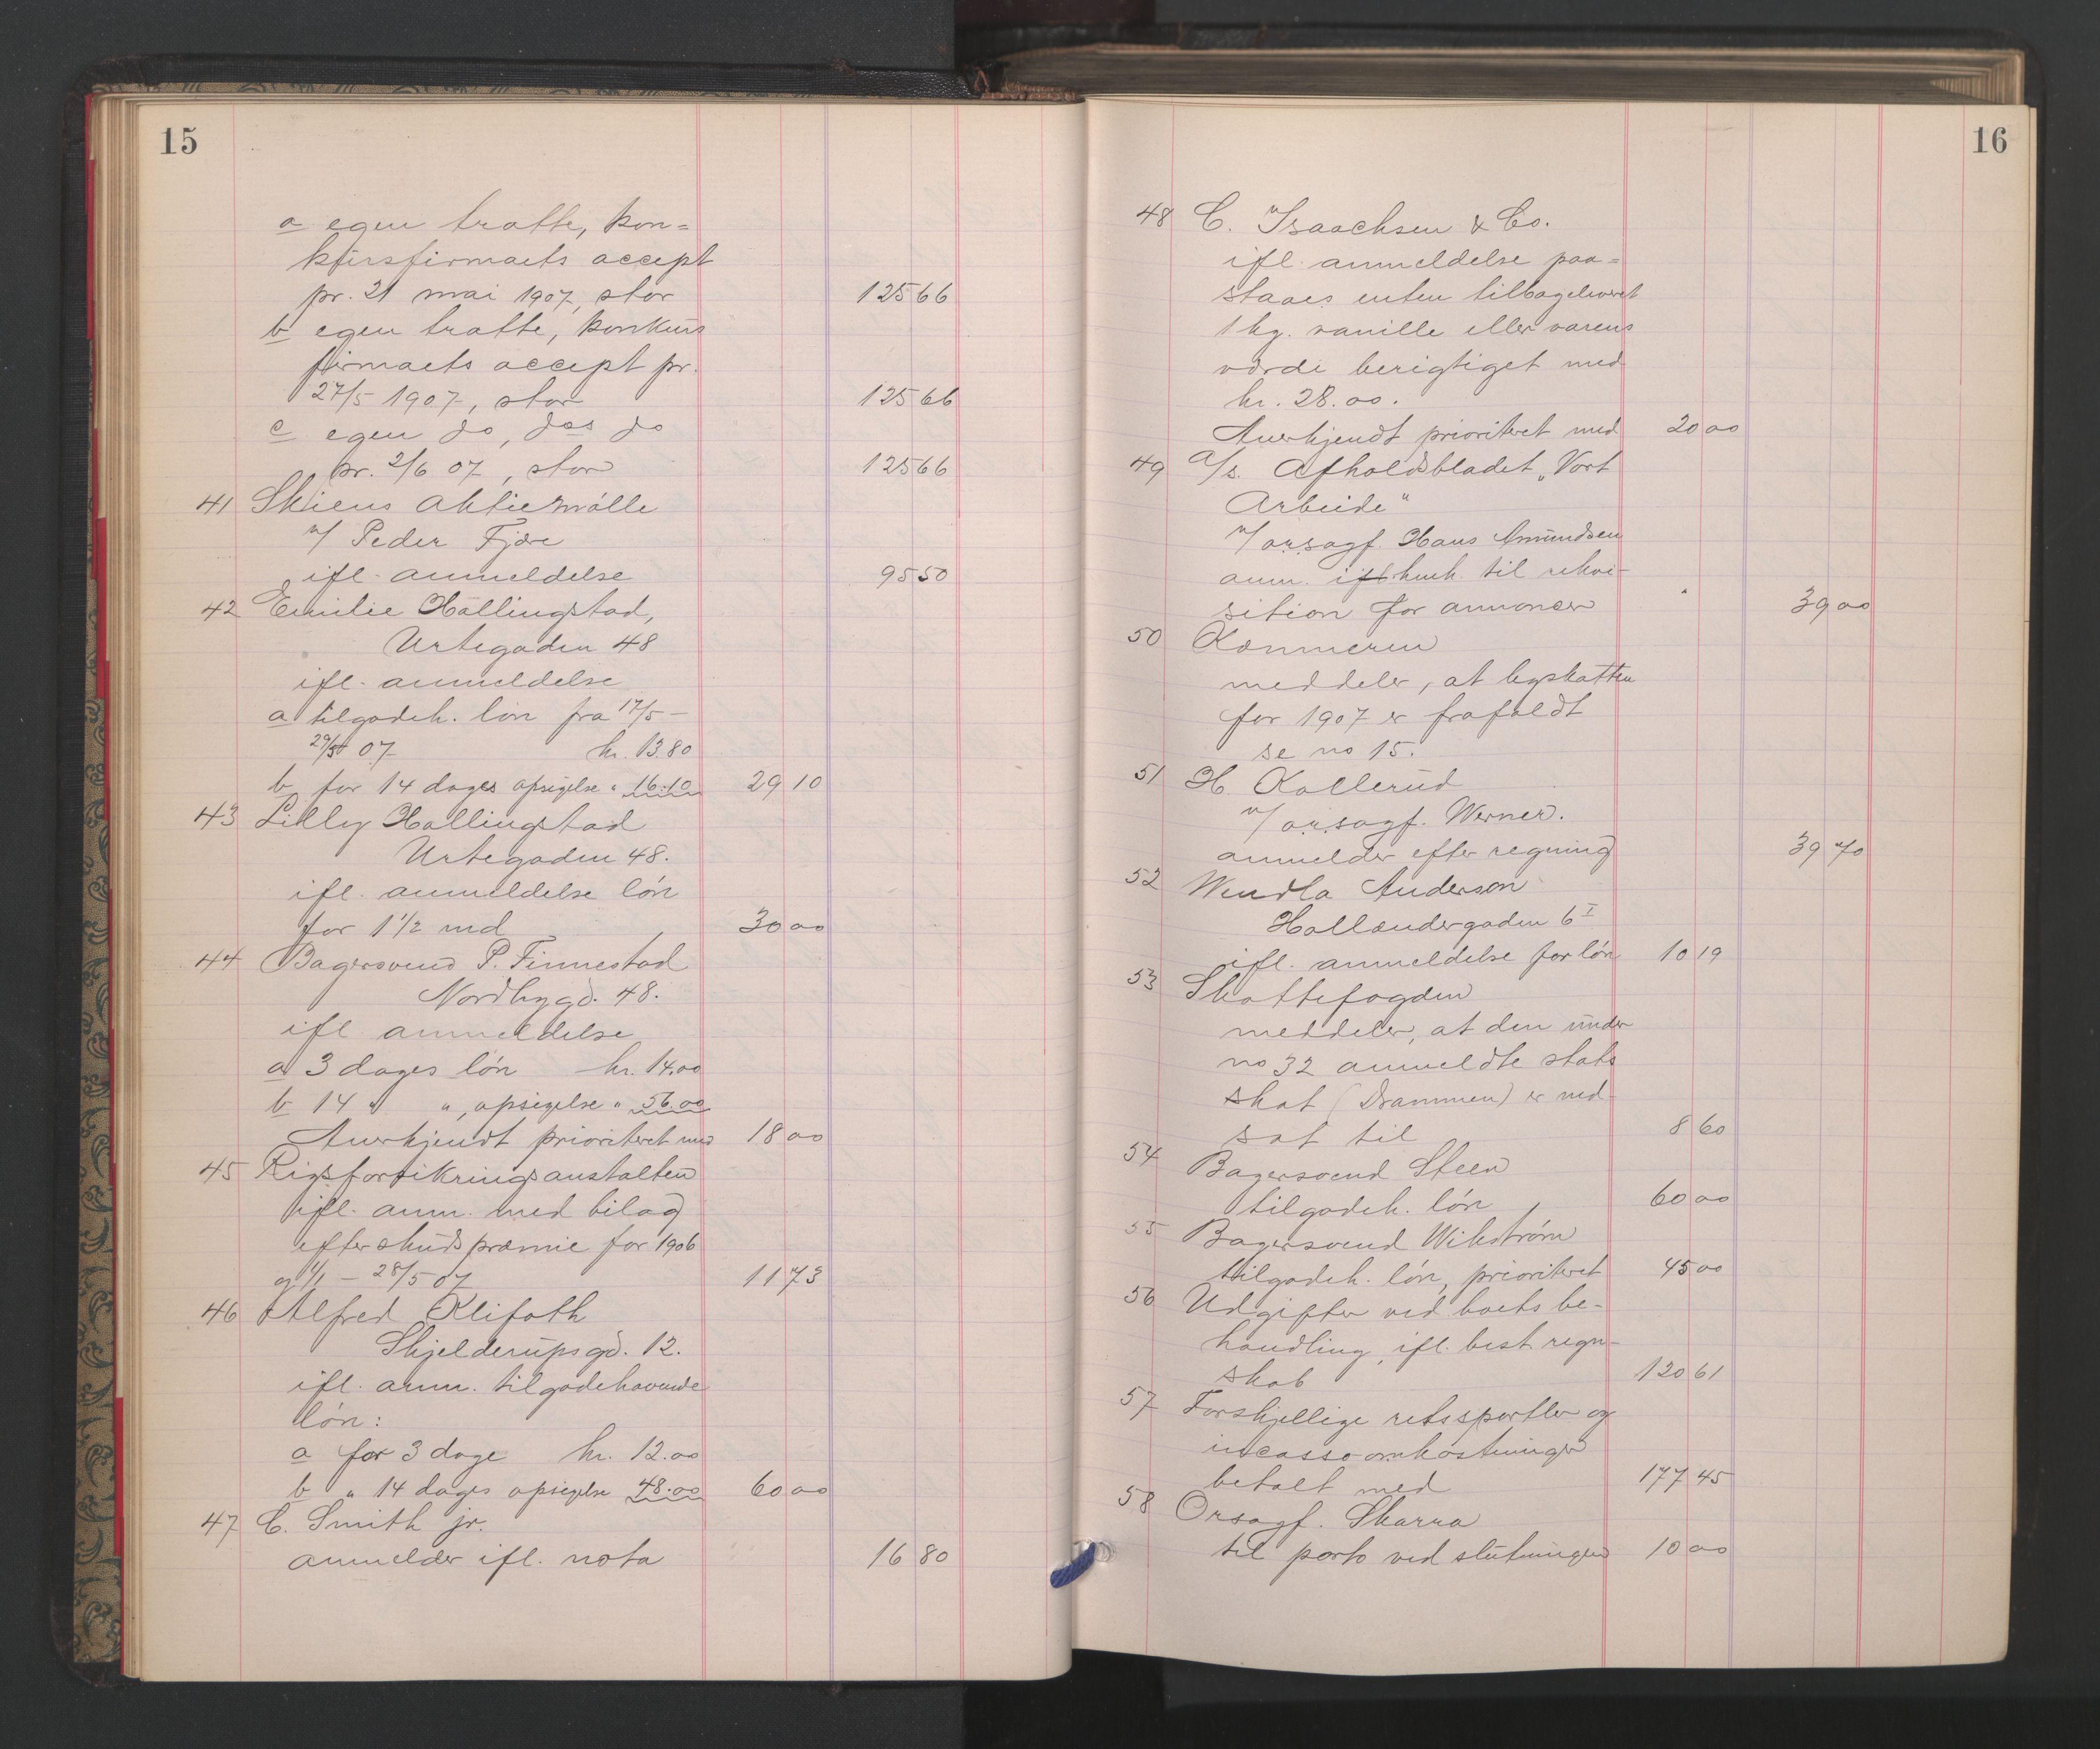 15
a egen tratte, kon=
kursfirmaets accept
pr. 21 mai 1907, stor 125 66
b egen tratte, konkurs
firmaets accept pr.
27/5 1907, stor 125 66
c egen do, do's do
pr. 2/6 07, stor 125 66
41 Skiens Aktiemölle
v/ Peder Fjære
ifl. anmeldelse 95 50
42 Emilie Hallingstad,
Urtegaden 48
ifl. anmeldelse
a tilgodeh. lön fra 17/5 –
29/5 07 kr. 13.80
b for 14 dages opsigelse " 16.10 29 10
43 Lilly Hallingstad
Urtegaden 48.
ifl. anmeldelse lön
for 1 1/2 md 30 00
44 Bagersvend P. Finnestad
Nordbygd. 48.
ifl. anmeldelse
a 3 dages lön kr. 14.00
b 14 " ", opsigelse " 56.00
Anerkjendt prioriteret med 18 00
45 Rigsforsikringsanstalten
ifl. anm. med bilag
efterskudspræmie for 1906
og 1/1 – 28/5 07 11 73
46 Alfred Klifoth
Skjelderupsgd. 12.
ifl. anm. tilgodehavende
lön:
a for 3 dage kr. 12.00
b " 14 dages opsigelse 48.00 60 00
47 C. Smith jr.
anmelder ifl. nota 16 80
16
48 C. Isaachsen & Co.
ifl. anmeldelse paa=
staaes enten tilbageleveret
1 kg. vanille eller varens
værdi berigtiget med
kr. 28.00.
Anerkjendt prioriteret med 20 00
49 A/s. Afholdsbladet „Vort
Arbeide"
v/ o.r.sagf. Hans Amundsen
anm. ifl. henh. til rekvi-
sition for annoncer 39 00
50 Kæmneren
meddeler, at byskatten
for 1907 er frafaldt
se no 15.
51 H. Kollerud
v/ o.r.sagf. Werner.
anmelder efter regning 39 70
52 Wendla Anderson
Hollændergaden 6 I
ifl. anmeldelse for lön 10 19
53 Skattefogden
meddeler, at den under
no 32 anmeldte stats
skat (Drammen) er ned-
sat til 8 60
54 Bagersvend Steen
tilgodeh. lön 60 00
55 Bagersvend Wikström
tilgodeh. lön, prioriteret 45 00
56 Udgifter ved boets be-
handling, ifl. best. regn-
skab 120 61
57 Forskjellige retssportler og
incassoomkostninger
betalt med 177 45
58 Orsagf. Skarra
til porto ved slutningen 10 00